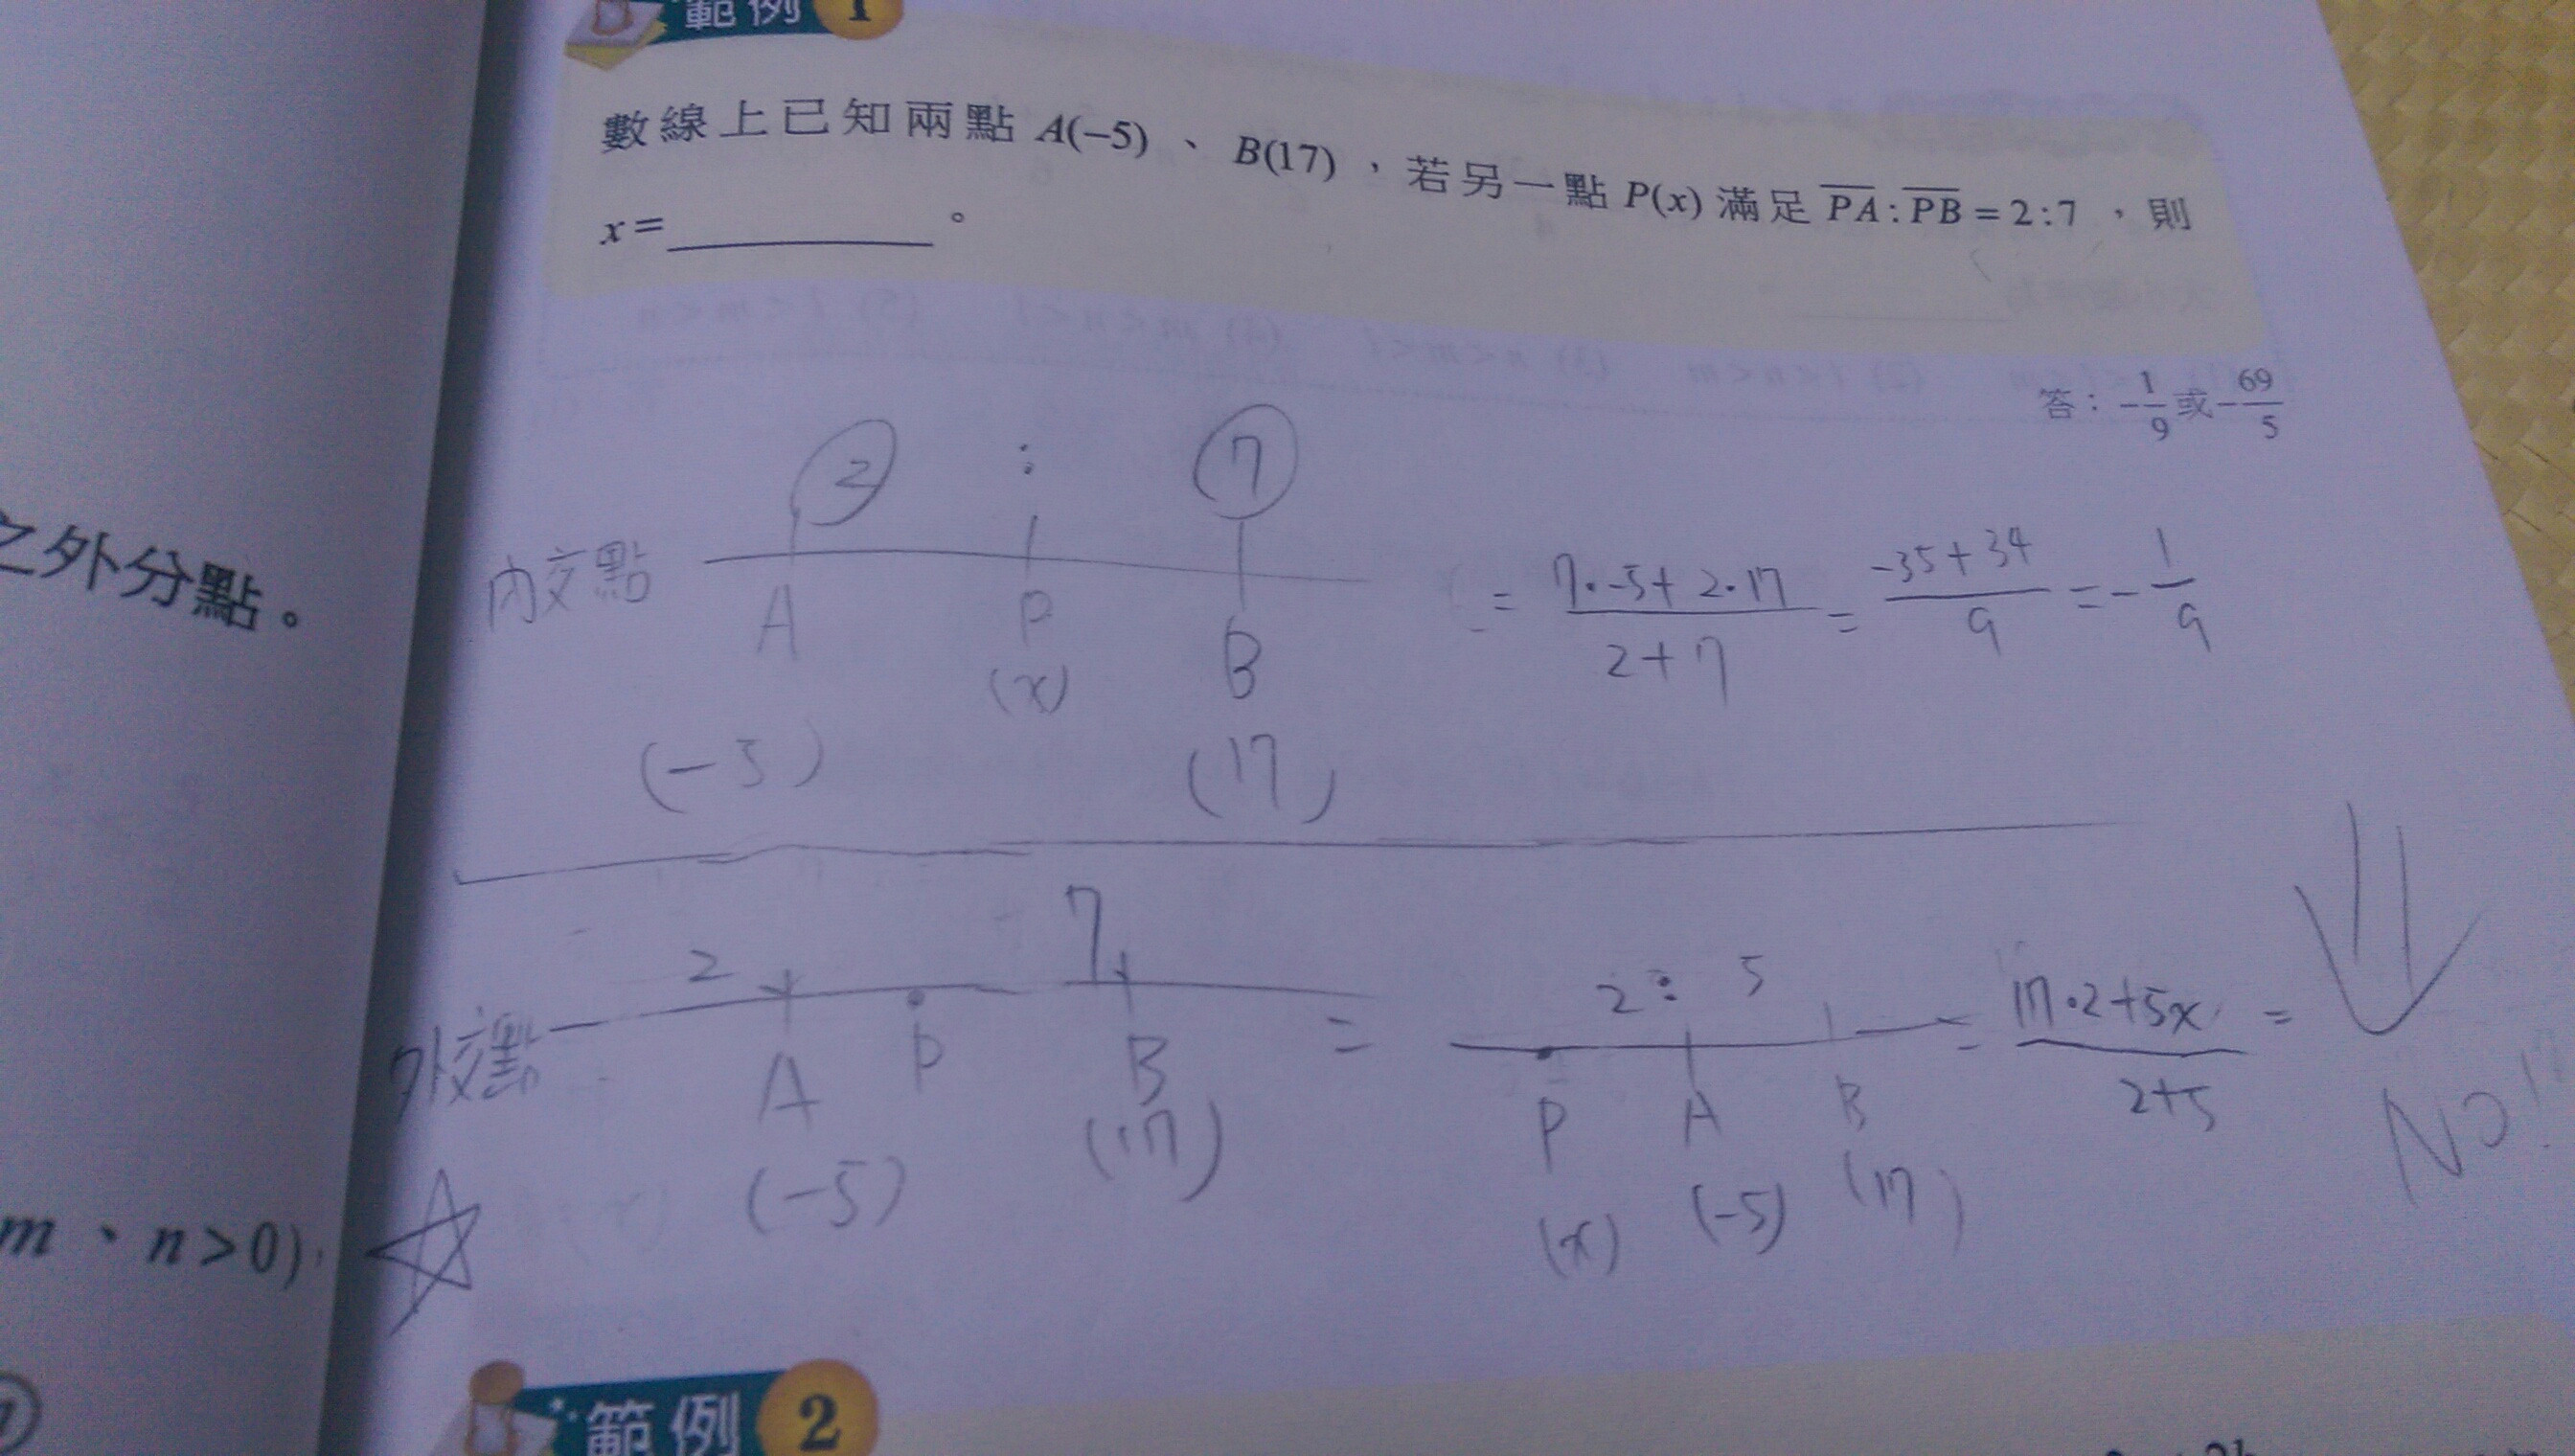 範例 1
數線上已知兩點 A(−5) 、 B(17) ，若另一點 P(x) 滿足 PA : PB = 2 : 7 ，則
x = ________ 。
答： −1/9 或 −69/5
2 : 7
內交點
A P B
(x)
(-5) (17)
= 7·-5+2·17 / 2+7 = -35+34 / 9 = -1/9
之外分點。
2 7
外交點
A P B
(-5) (17)
= 2 : 5
P A B
(x) (-5) (17)
= 17·2+5x / 2+5 =
NO!
m 、 n > 0)
範例 2